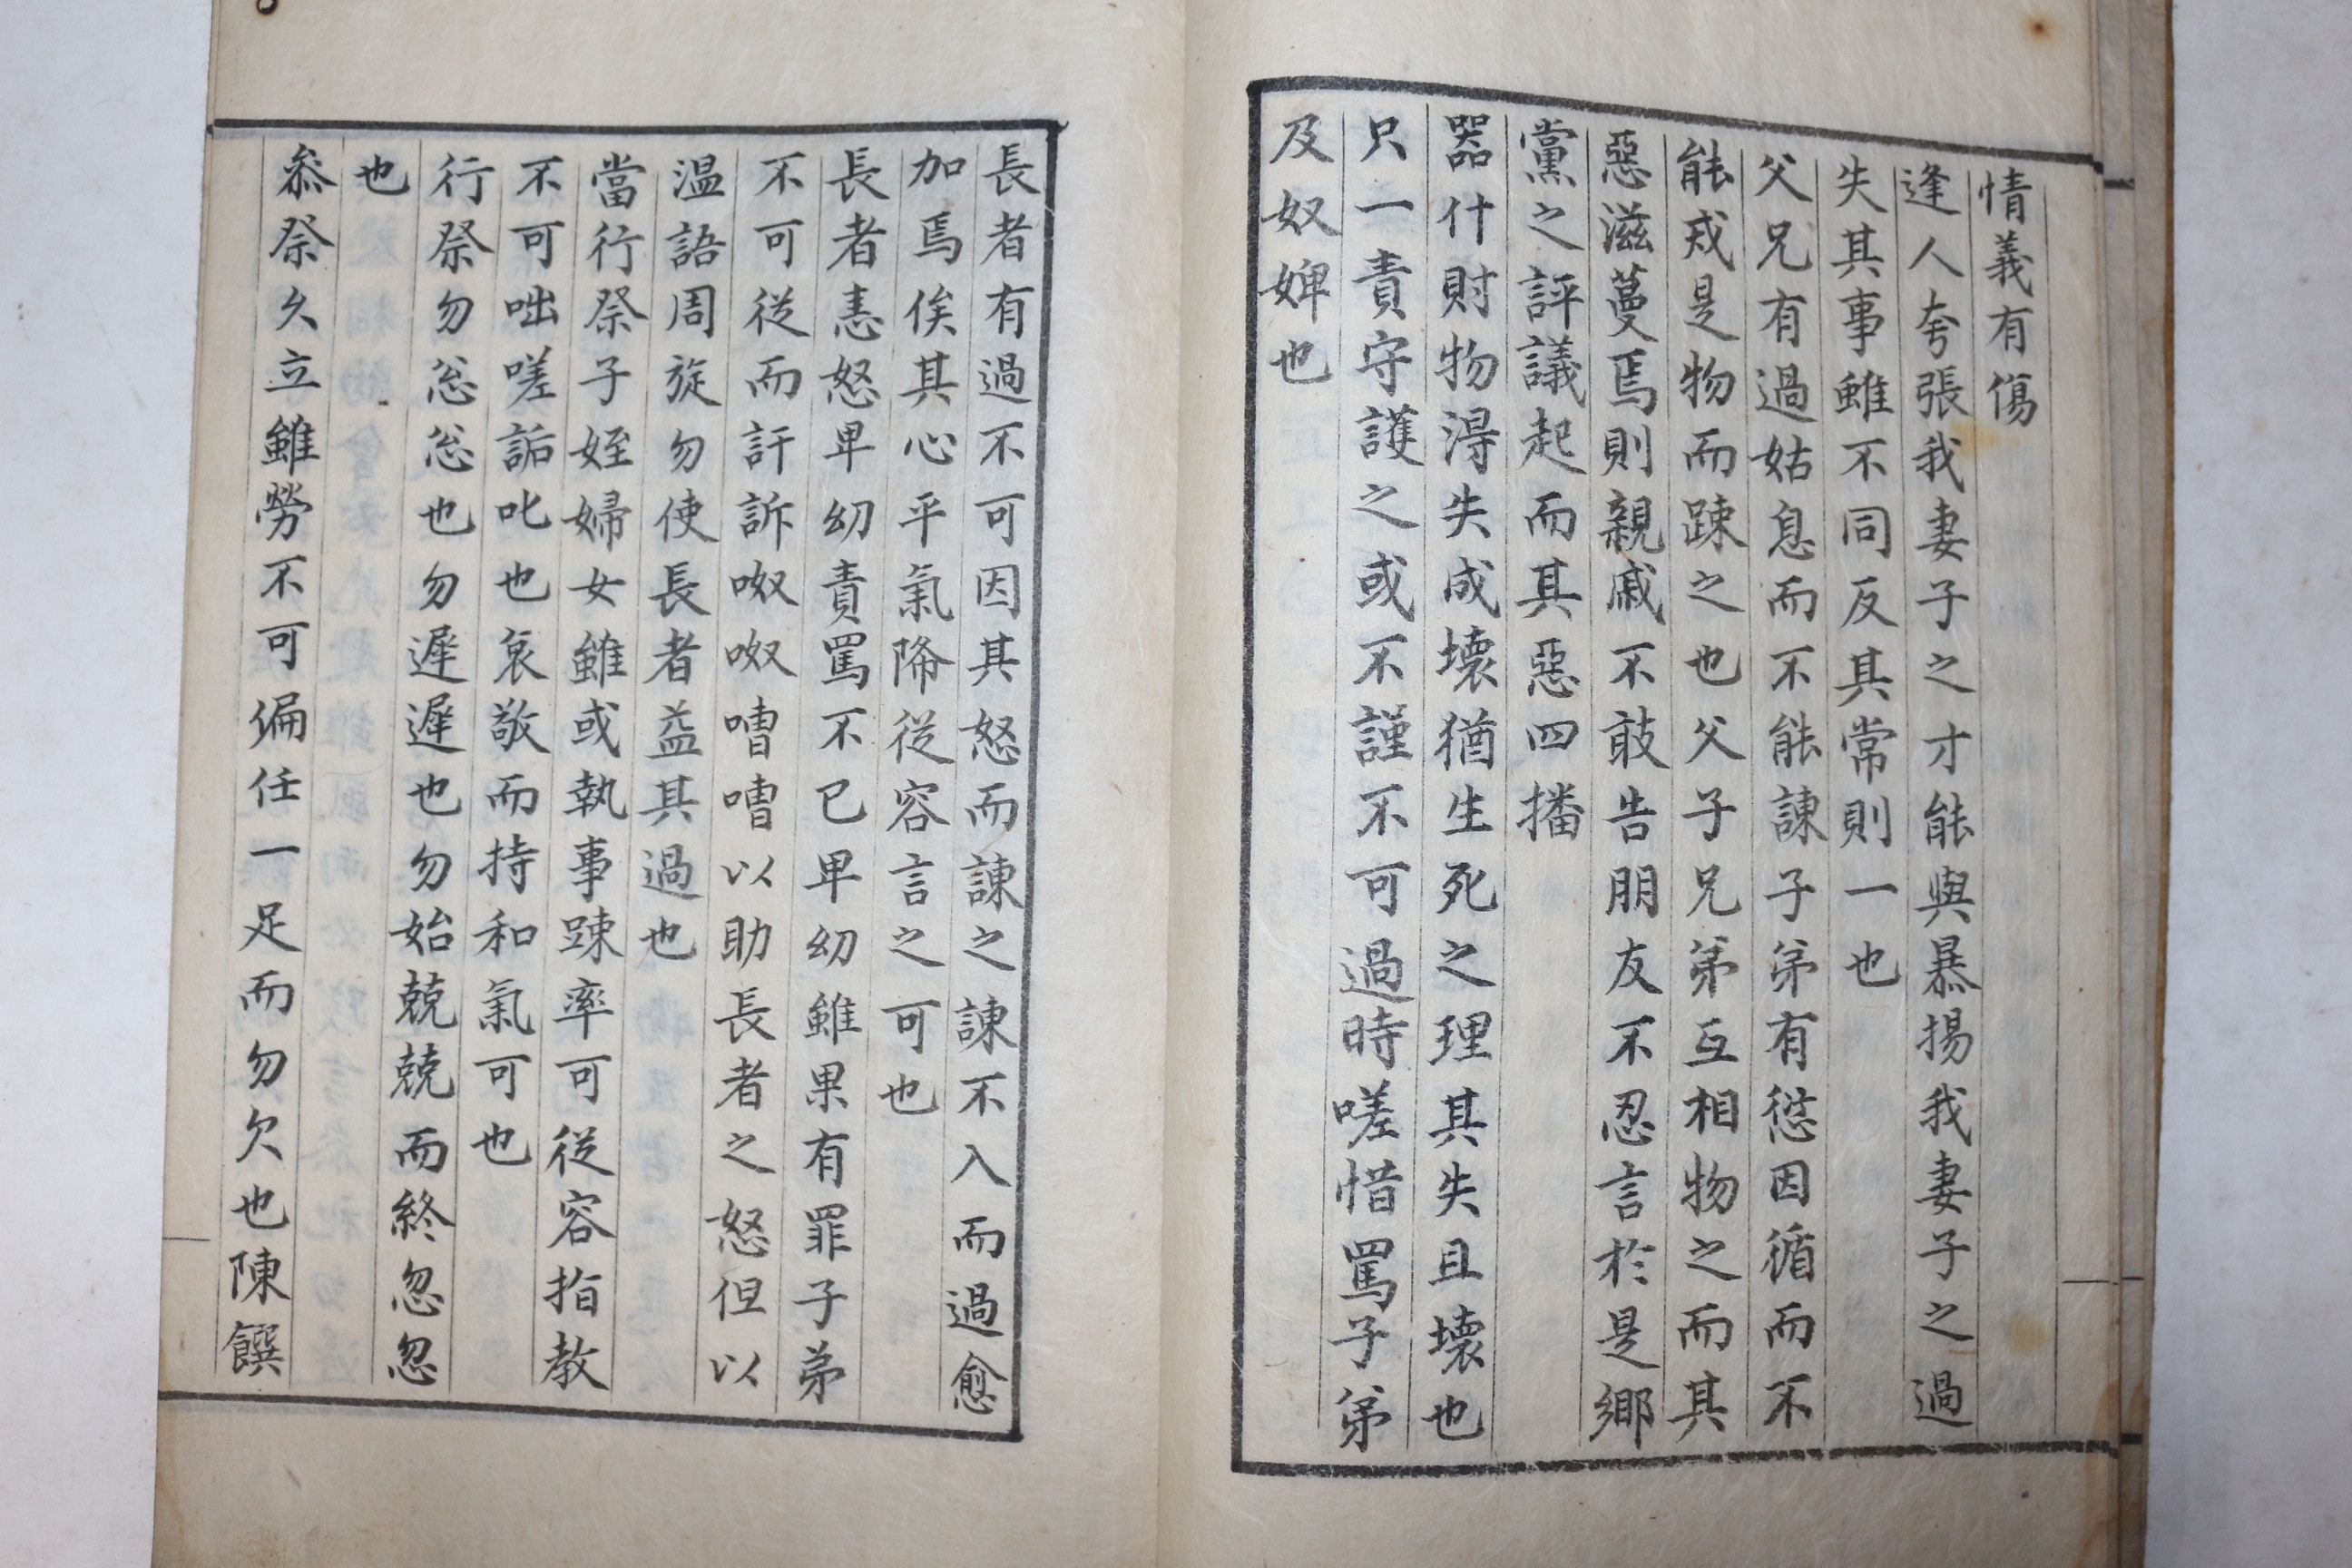 情義有傷
逢人夸張我妻子之才能與暴揚我妻子之過
失其事雖不同反其常則一也
父兄有過姑息而不能諫子弟有愆因循而不
能戒是物而踈之也父子兄弟互相物之而其
惡滋蔓焉則親戚不敢告朋友不忍言於是鄉
黨之評議起而其惡四播
器什財物得失成壞猶生死之理其失且壞也
只一責守護之或不謹不可過時嗟惜罵子弟
及奴婢也
長者有過不可因其怒而諫之諫不入而過愈
加焉俟其心平氣降從容言之可也
長者恚怒卑幼責罵不已卑幼雖果有罪子弟
不可從而訐訴呶呶嘈嘈以助長者之怒但以
温語周旋勿使長者益其過也
當行祭子姪婦女雖或執事踈率可從容指教
不可咄嗟詬叱也哀敬而持和氣可也
行祭勿忩忩也勿遲遲也勿始兢兢而終忽忽
也
叅祭久立雖勞不可偏任一足而勿欠也陳饌